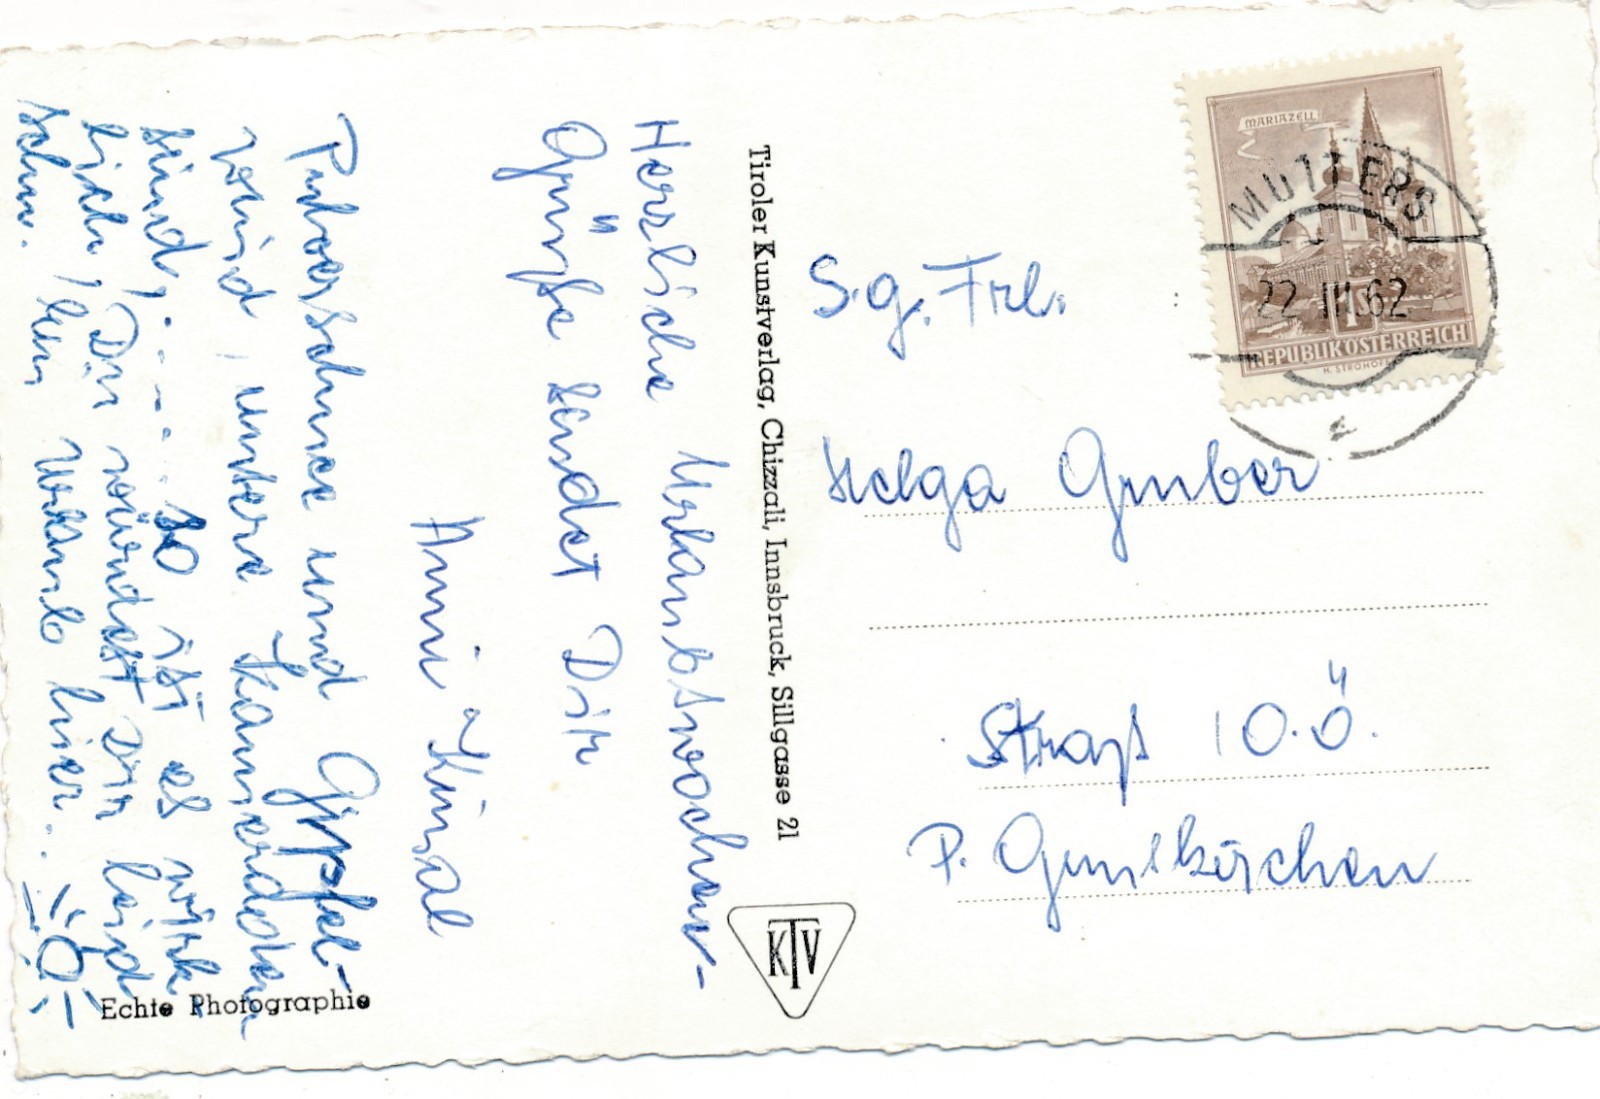 Herzliche Urlaubswochen-
Grüße sendet Dir
Anni u
Pulverschnee und Gipfel-
wind, unsere Kameraden
sind, . - - - . so ist es wirk
lich, Du würdest Dir
Urlaub hier.
Echte Photographie
Tiroler Kunstverlag, Chizzali, Innsbruck, Sillgasse 21
KTV
MARIAZELL
1
REPUBLIK ÖSTERREICH
H. STROHOFER
MUTTERS
22 III 62
S.g. Frl.
Helga Gruber
Straß 10.Ö.
P. Gunskirchen